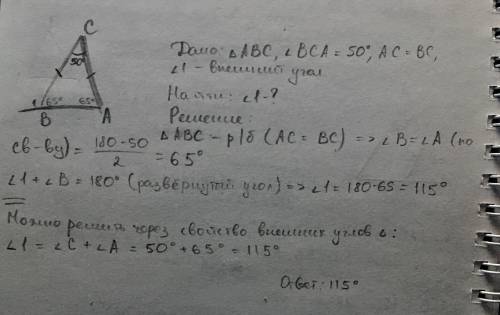 C
50°
1 65° 65°
B A
Дано: △ABC, ∠BCA = 50°, AC = BC,
∠1 – внешний угол
Найти: ∠1 - ?
Решение:
△ABC – р/б (AC = BC) => ∠B = ∠A (по
св-ву) = 180-50 / 2 = 65°
∠1 + ∠B = 180° (развёрнутый угол) => ∠1 = 180-65 = 115°
Можно решить через свойство внешних углов △:
∠1 = ∠C + ∠A = 50° + 65° = 115°
Ответ: 115°